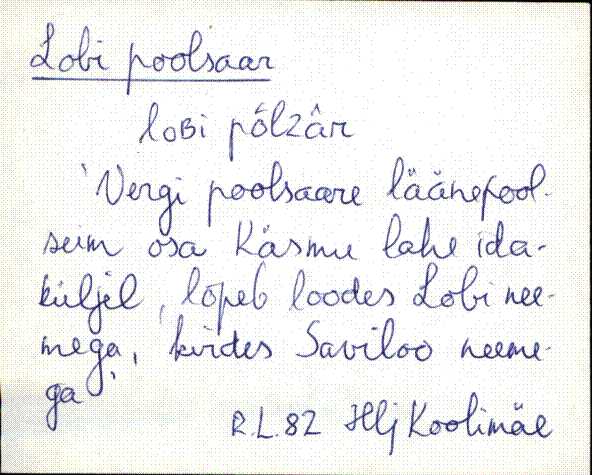 Lobi poolsaar
loʙi pôlzâr
'Vergi poolsaare läänepool-
seim osa Käsmu lahe ida-
küljel, lõpeb loodes Lobi nee-
mega, kirdes Saviloo neeme-
ga'
R.L. 82 Hlj Koolimäe